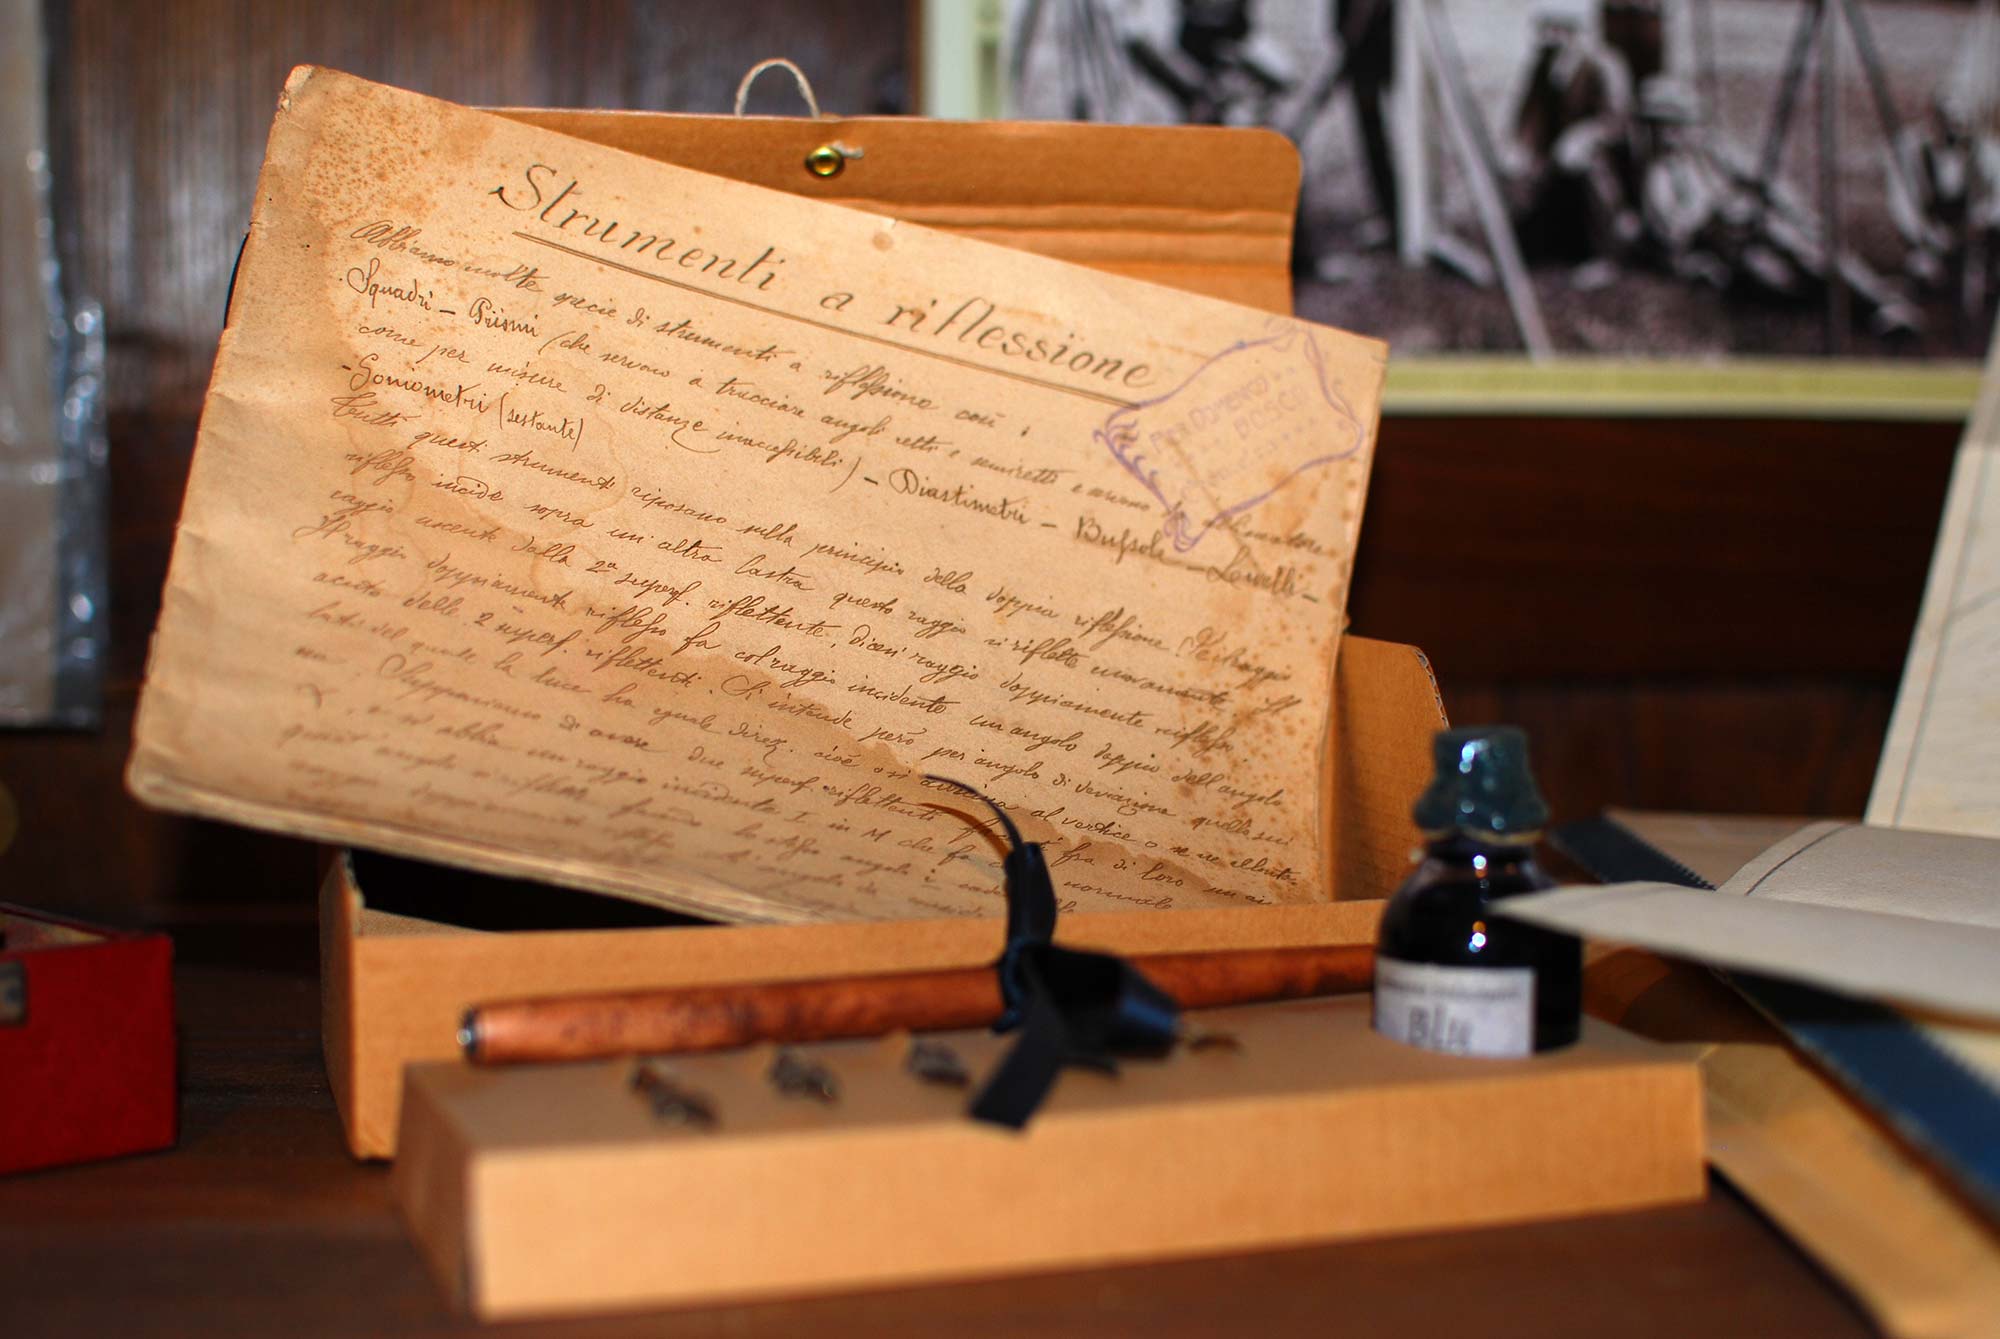 Strumenti a riflessione
Abbiamo molte specie di strumenti a riflessione così:
Squadri - Prismi (che servono a tracciare angoli retti e semiretti e servono
come per misure di distanze inaccessibili) - Diastimetri - Bussole - Livelli -
- Goniometri (sestante)
Tutti questi strumenti riposano sulla principio della doppia riflessione. Se il raggio
riflesso incide sopra un'altra lastra questo raggio si riflette nuovamente Il
raggio uscente dalla 2ª superf. riflettente, dicesi raggio doppiamente riflesso.
Il raggio doppiamente riflesso fa col raggio incidente un angolo doppio dell'angolo
acuto delle 2 superf. riflettenti. Si intende però per angolo di deviazione quello sui
lati del quale la luce ha eguale direz. cioè o si avvicina al vertice o se ne allonta-
na. Supponiamo di avere due superf. riflettenti fra di loro un
, e si abbia un raggio incidente I in M che fa normale
quest'angolo si riflette facendo lo stesso angolo i
DOMENICO
BOSCHI
BLU